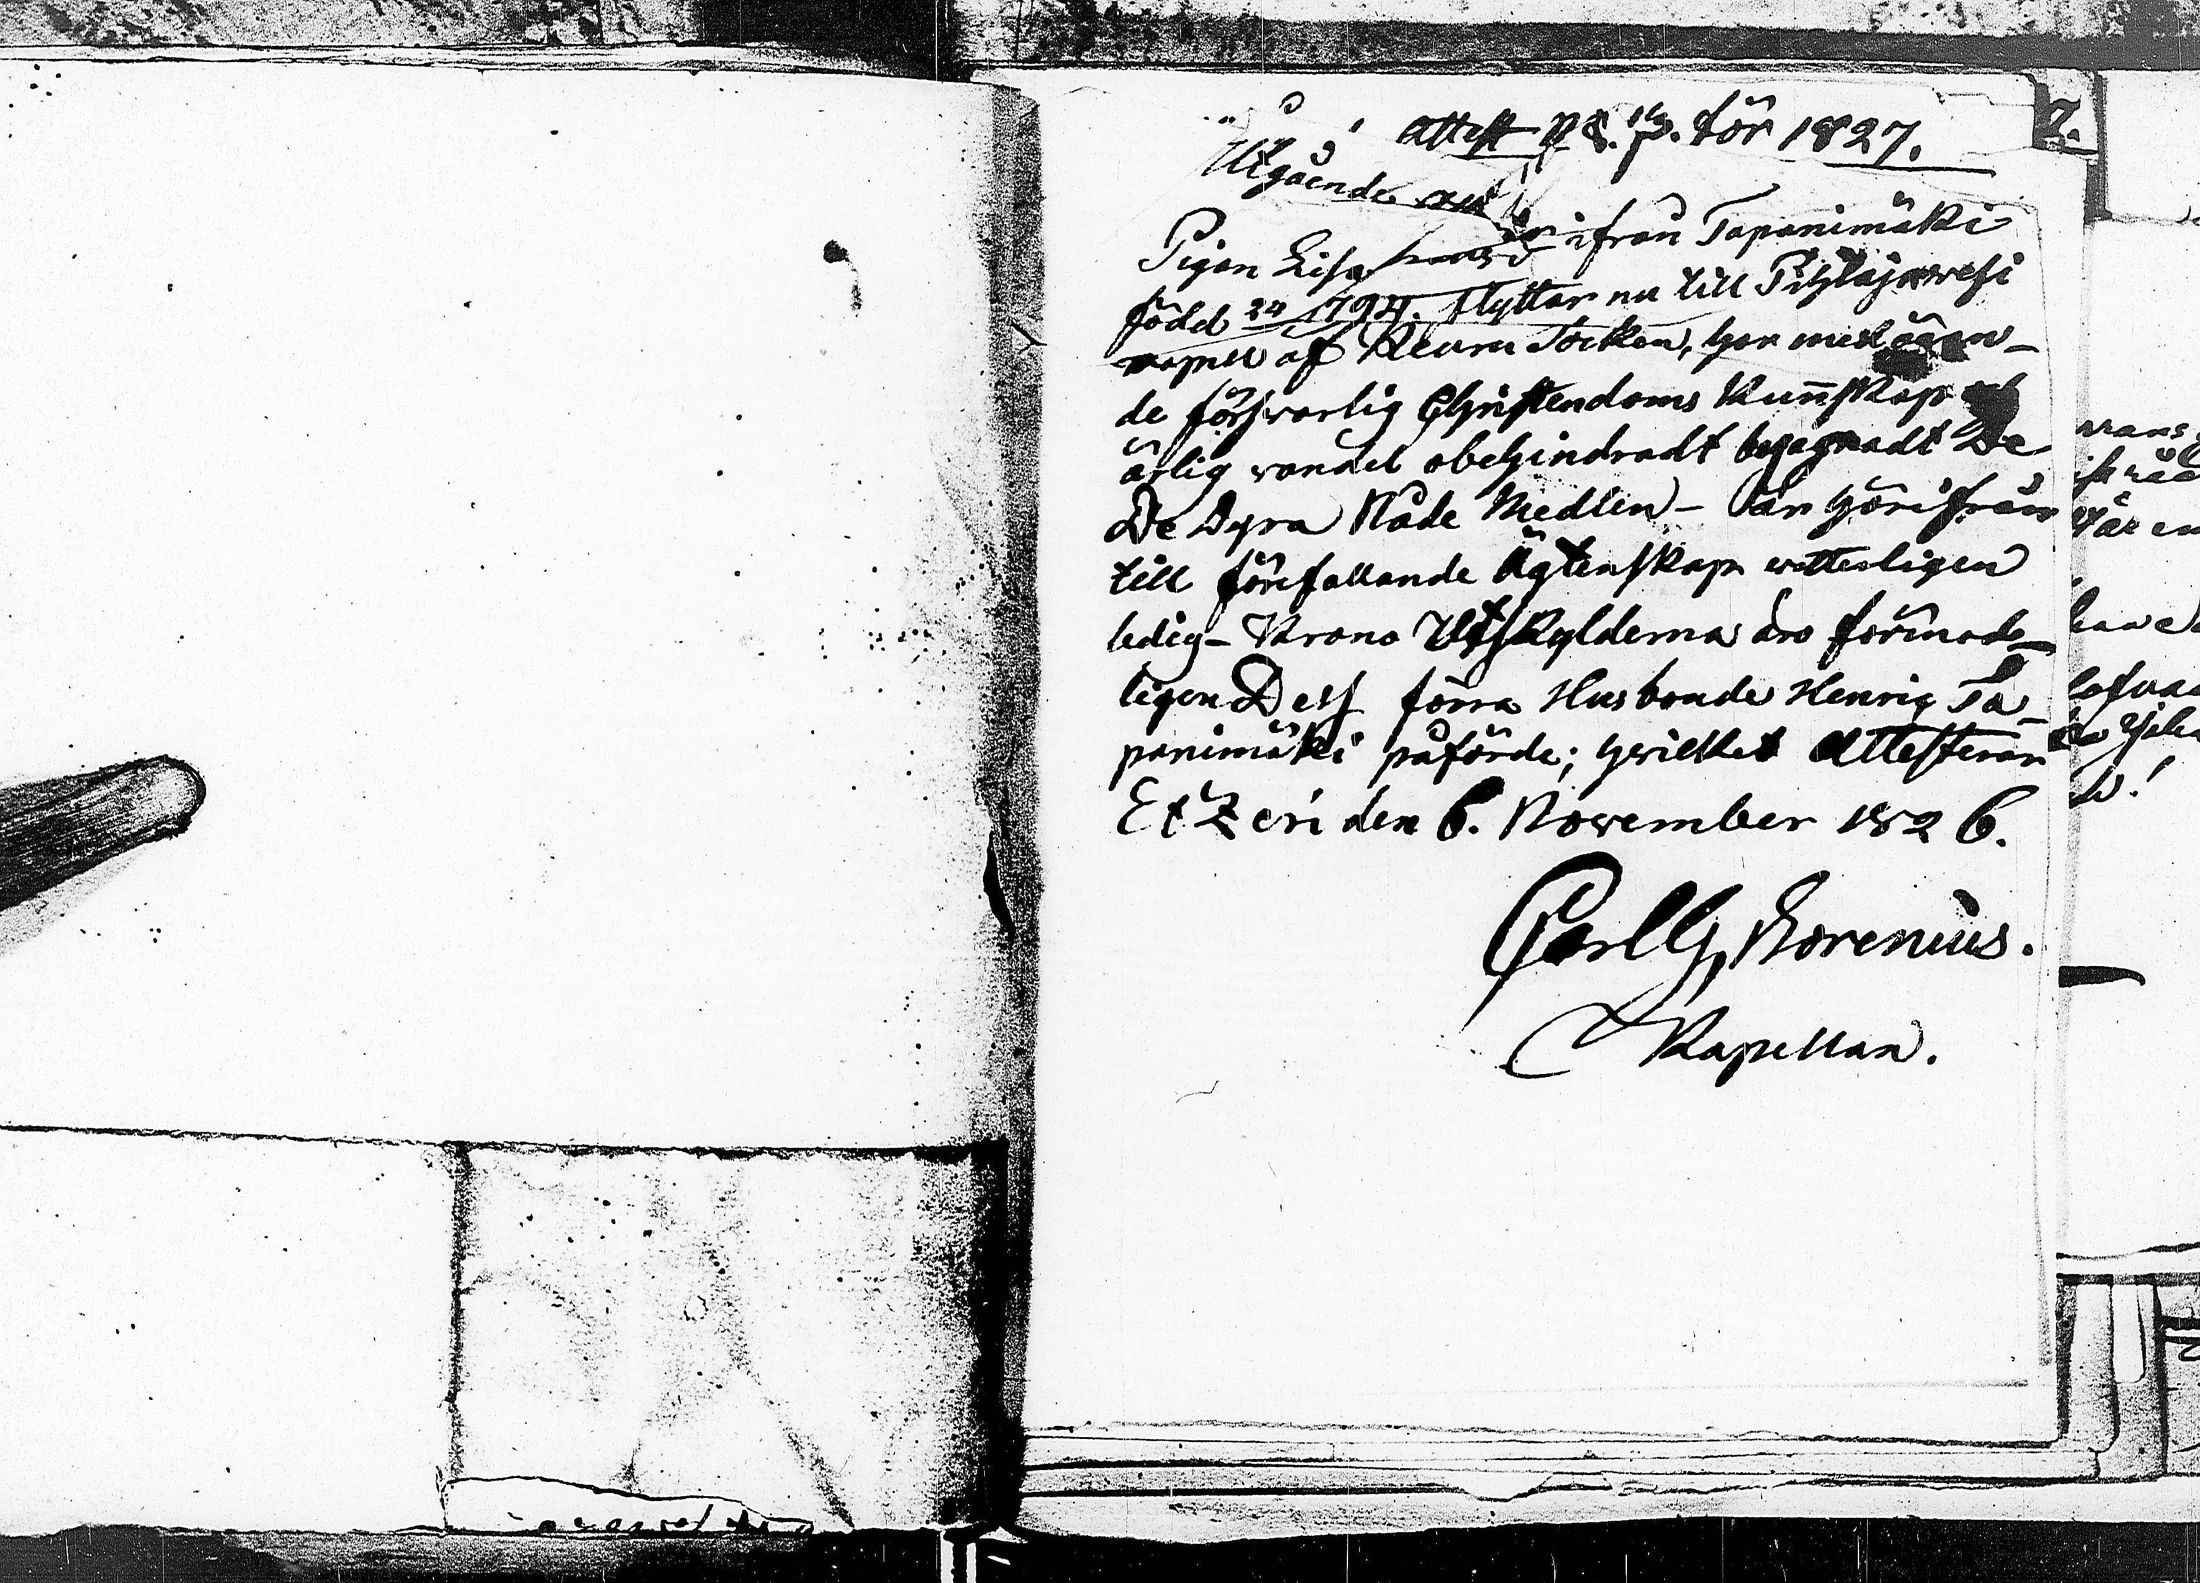 Attest N 8. för 1827.
7.
Utgående
Pigan Lisa ifrån Tapanimäki
född 24 1794. flyttar nu till Pihlajawesi
af Keuru Socken, har med ägan-
de förswarlig Christendoms Kunskap
ärlig wandel obehindradt begagnadt De
De Dyra Nåde Medlen – är härifrån
till förefallande Ägtenskap wetterligen
ledig – Krono Utskylderna äro förmode-
ligen Dess förra Husbonde Henric Ta-
panimäki påförde; hwilket Attesterar
Etzeri den 6. November 1826.
Carl G. Borenius.
Kapellan.